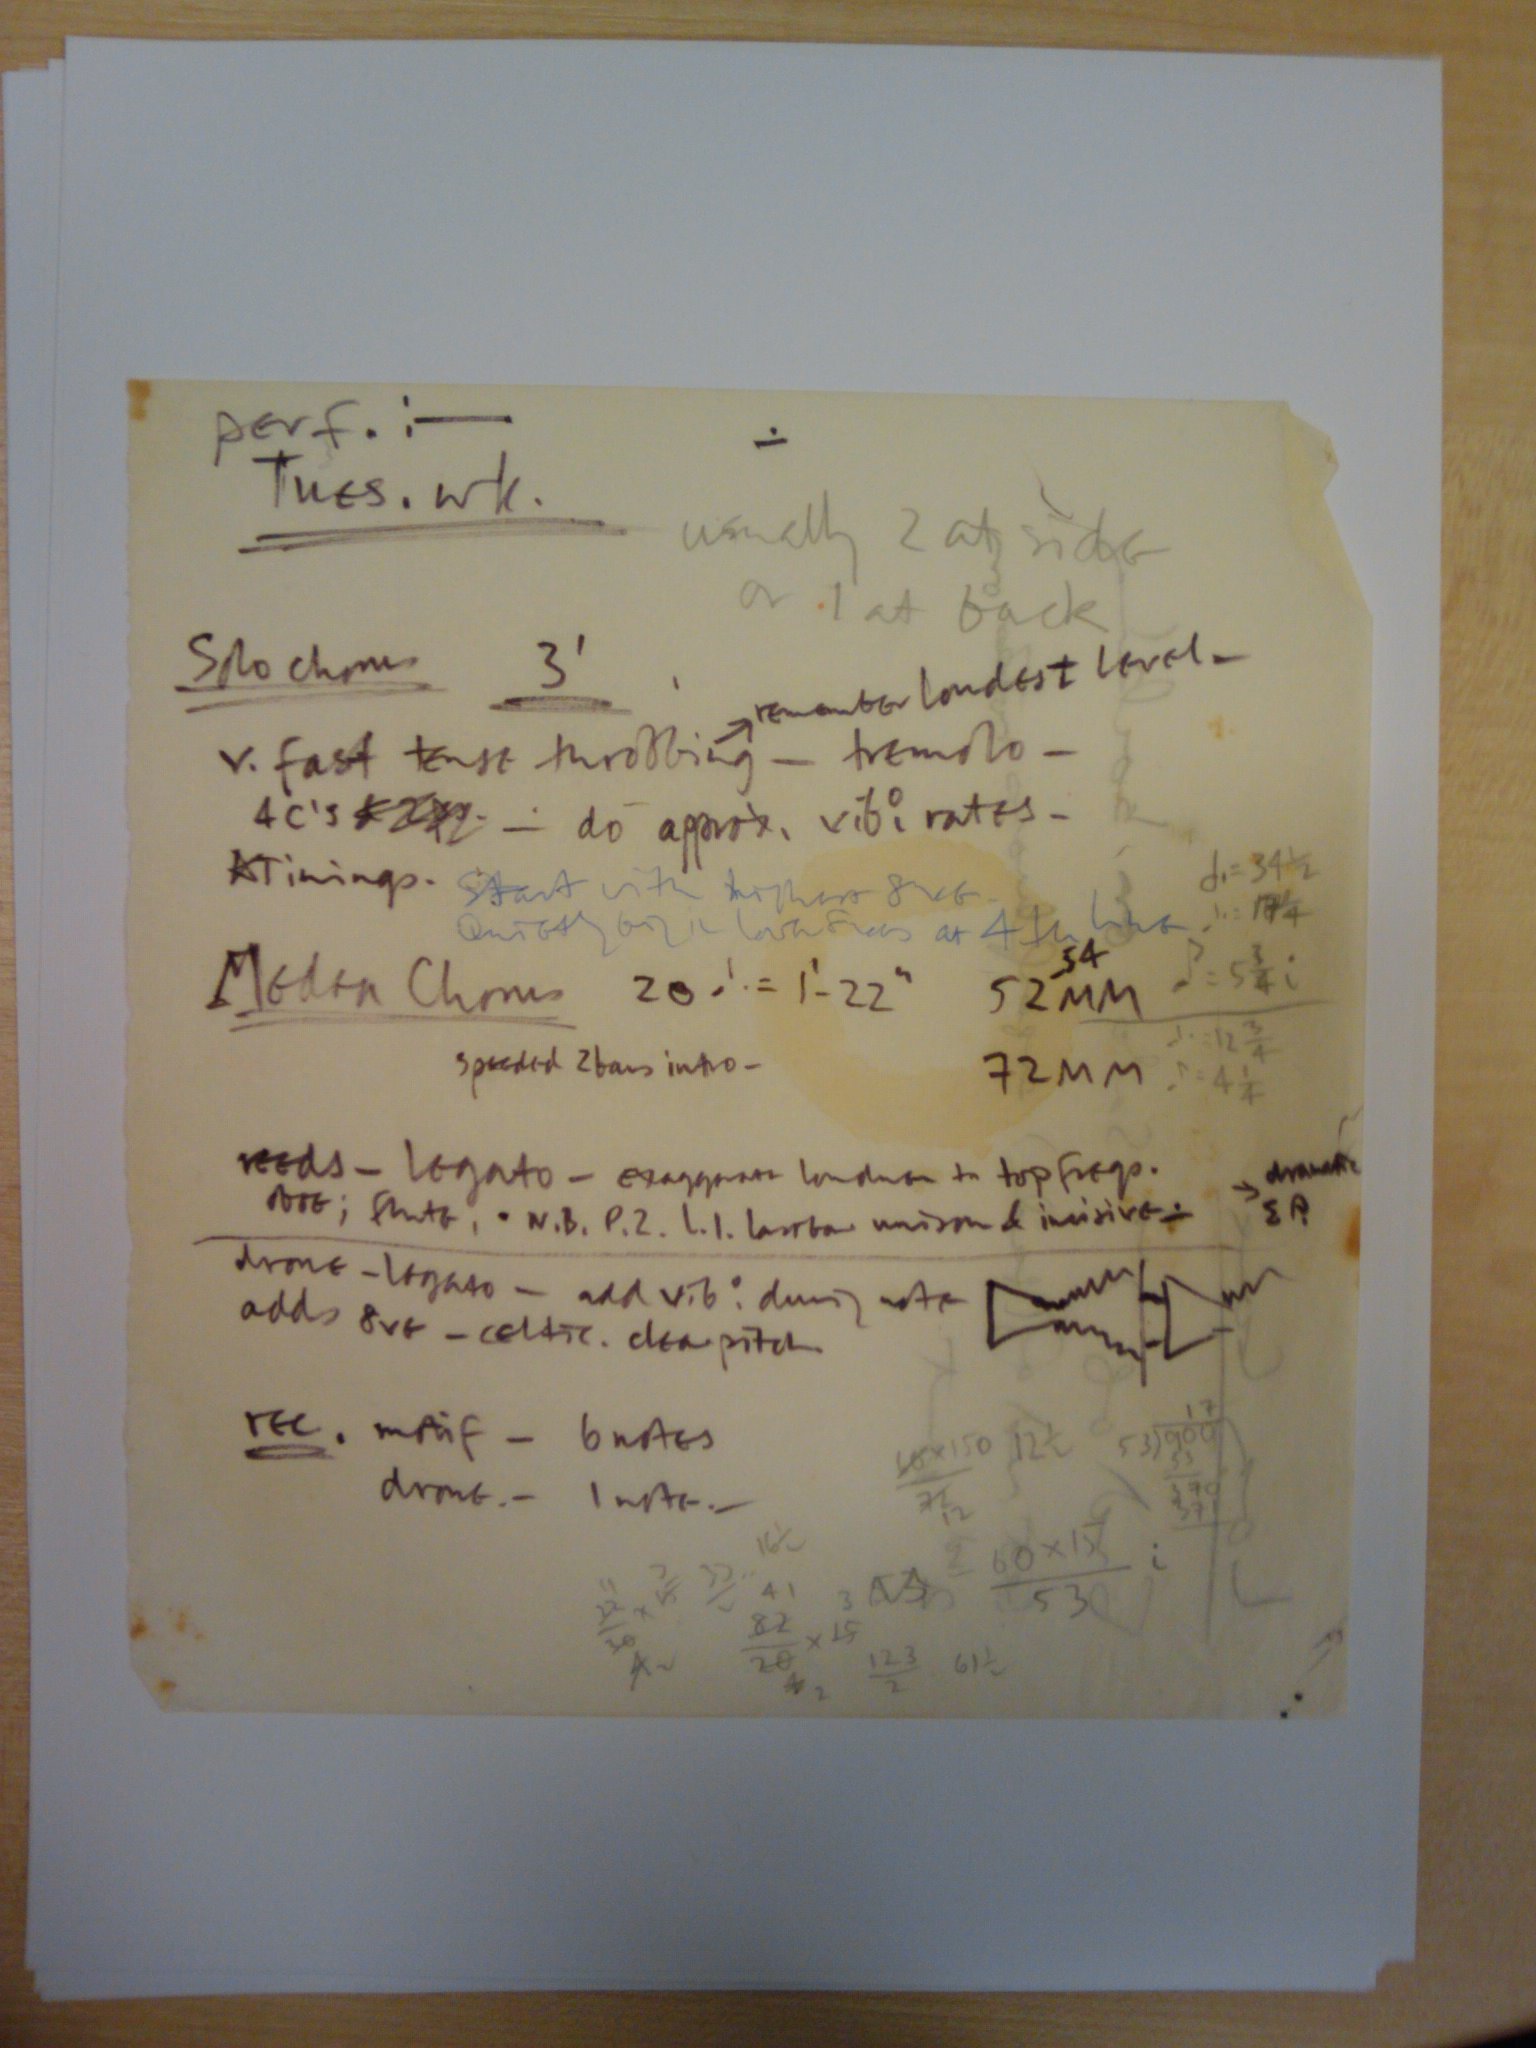 perf. :—
Tues. wk.
usually 2 at side
or 1 at back
Solo chorus 3'
remember loudest level –
v. fast tense throbbing – tremolo –
4 C's – do approx. vib° rates –
Timings.
Start with highest 8ve
Quietly at 4th line
= 34½
Medea Chorus 20 ♩. = 1'-22" 52 MM
54
= 5¾
speeded 2 bars intro – 72 MM
= 12¾
= 4¼
reeds – legato – exaggerate loudness in top freqs.
oboe; flute, • N.B. P.2. L.1. last bar unison & incisive
→ dramatic
drone – legato – add vib° during note
adds 8ve – celtic. clear pitch
rec. motif – 6 notes
drone. – 1 note. –
×150 12½
17
53)900
53
370
371
16½
41
60×15
530
82
20 ×15
123
2
61½